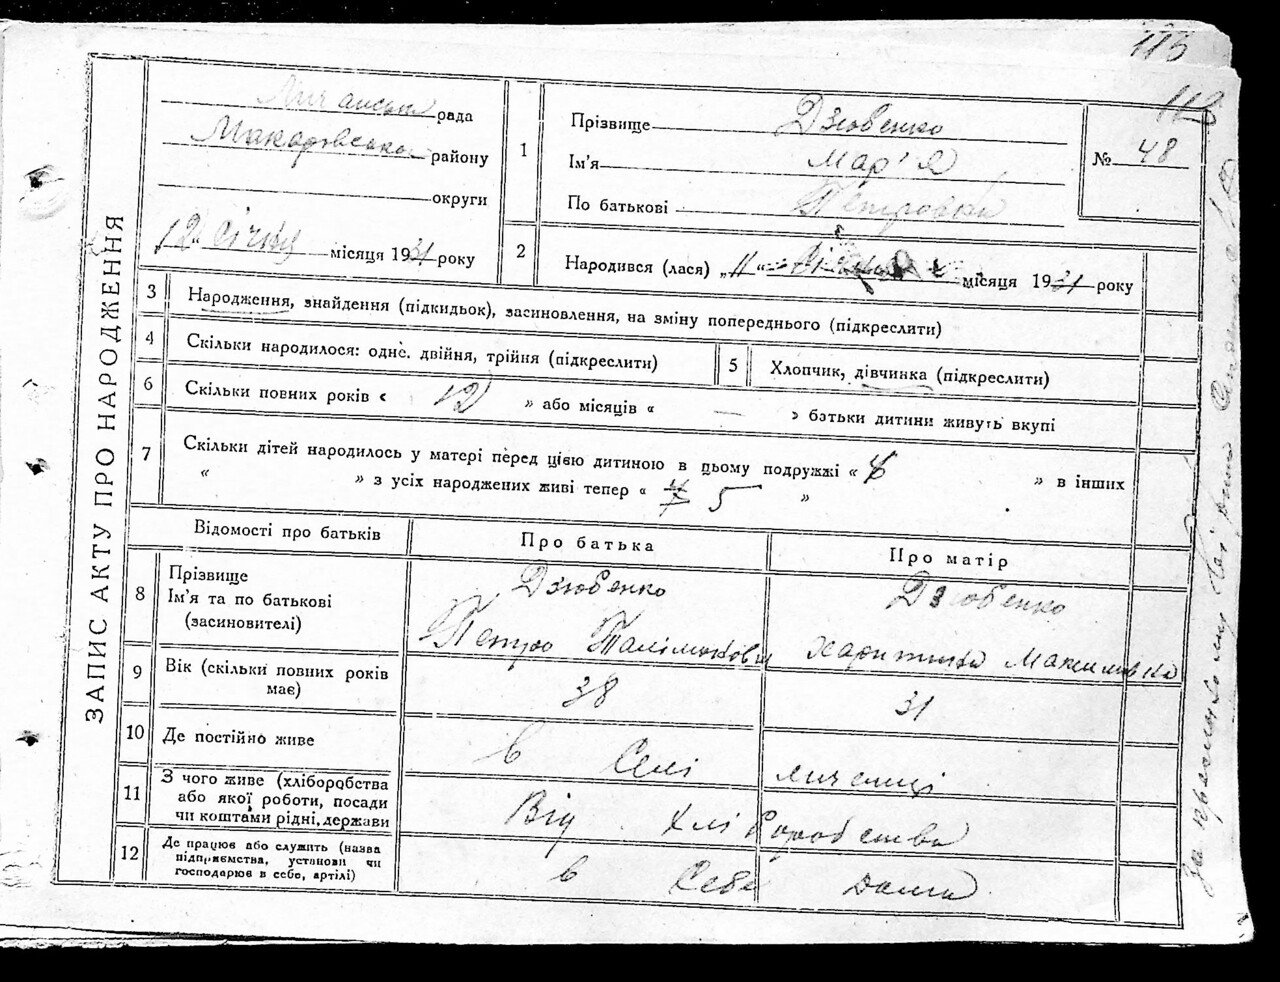 115
113
ЗАПИС АКТУ ПРО НАРОДЖЕННЯ
рада
Макарівського району
округи
„12" січня місяця 1931 року
1
Прізвище Дзюбенко
Ім'я Мар'я
По батькові Петровна
№ 48
2
Народився (лася) „11" січня місяця 1931 року
3 Народження, знайдення (підкидьок), засиновлення, на зміну попереднього (підкреслити)
4 Скільки народилося: одне, двійня, трійня (підкреслити)
5 Хлопчик, дівчинка (підкреслити)
6 Скільки повних років « 12 » або місяців « — » батьки дитини живуть вкупі
7 Скільки дітей народилось у матері перед цією дитиною в цьому подружжі « » в інших
« » з усіх народжених живі тепер « 5 »
Відомості про батьків
Про батька
Про матір
8 Прізвище
Ім'я та по батькові
(засиновителі)
Дзюбенко
Петро
Дзюбенко
Харитина Максимівна
9 Вік (скільки повних років має)
38
31
10 Де постійно живе
в Селі Личанці
11 З чого живе (хліборобства
або якої роботи, посади
чи коштами рідні, держави
Від Хліборобства
12 Де працює або служить (назва
підприємства, установи чи
господарює в себе, артілі)
в Себе дома